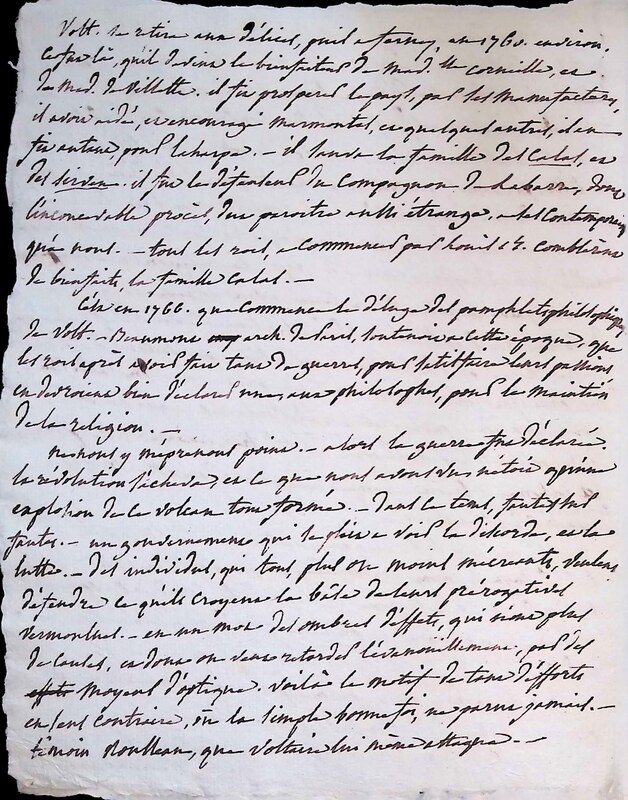 Volt. se retire aux délices, puis a ferney, en 1760. environ.
ce fut là, qu'il devint le bienfaiteur de mad. lle corneille, et
de mad. de villette. il fit prosperer le pays, par ses manufactures,
il avoit aidé, et encouragé marmontel, et quelques autres, il en
fit autant, pour laharpe. — il sauva la famille des Calas, et
des sirven. il fut le défenseur du compagnon de Labarre, dont
l'inconcevable procès, dut paroitre aussi étrange, a ses contemporains
qu'a nous. — tout les rois, a commencer par louis 15. comblèrent
de bienfaits, la famille calas. —
C'est en 1766. que commence le déluge des pamphlets philosophiques
de volt. — Beaumont arch. de paris, soutenoit a cette époque, que
les rois après avoir fait tant de guerres, pour satisfaire leurs passions
en devroient bien déclarer une, aux philosophes, pour le maintien
de la religion. —
ne nous y méprenons point. — alors la guerre fut déclarée.
la révolution s'acheva, et ce que nous avons vu n'étoit qu'une
explosion de ce volcan tout formé. — dans ce tems, fautes sur
fautes. — un gouvernement qui se plait a voir la discorde, et la
lutte. — des individus, qui tous, plus ou moins mécréants, veulent
défendre ce qu'ils croyent la bâse de leurs prérogatives
vermoulues. — en un mot des ombres d'effets, qui n'ont plus
de causes, et dont on veut retarder l'évanouillement, par des
effets moyens d'optique. voilà le motif de tant d'efforts
en sens contraire, où la simple bonne foi, ne parut jamais. —
témoin Rousseau, que voltaire lui même attaqua. —